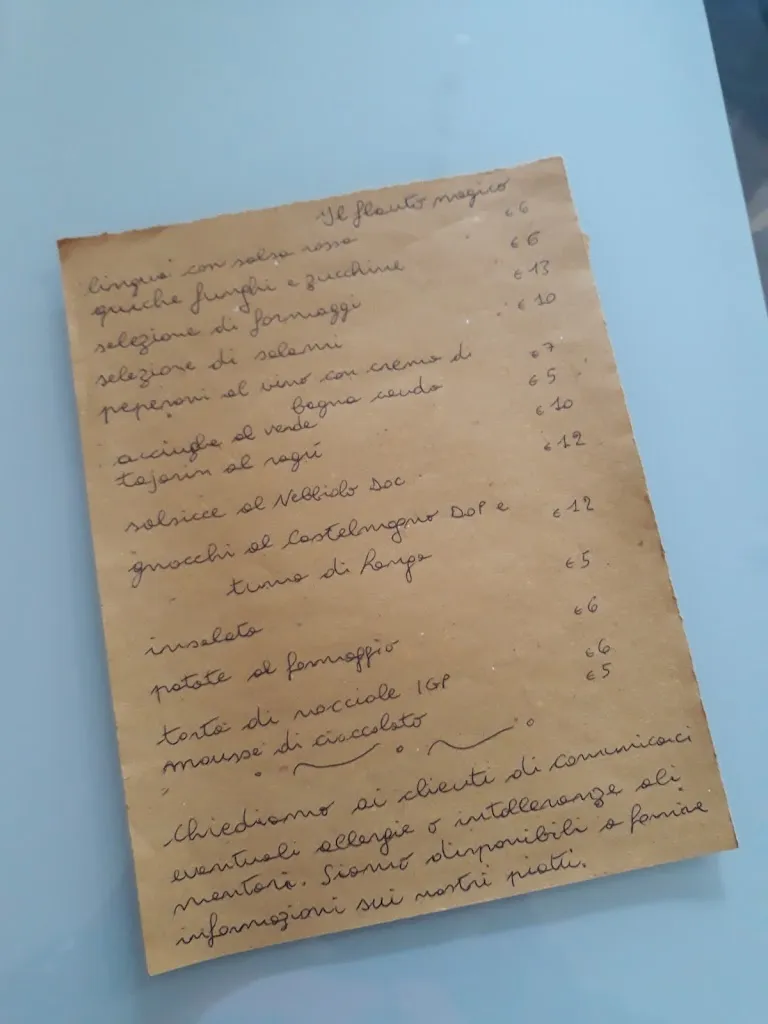 Il flauto magico
lingua con salsa rossa € 6
quiche funghi e zucchine € 6
selezione di formaggi € 13
selezione di salami € 10
peperoni al vino con crema di
bagna cauda € 7
acciughe al verde € 5
tajarin al ragú € 10
salsicce al Nebbiolo DOC € 12
gnocchi al Castelmagno DOP e
tuma di Langa € 12
insalata € 5
patate al formaggio € 6
torta di nocciole IGP € 6
mousse di cioccolato € 5
Chiediamo ai clienti di comunicarci
eventuali allergie o intolleranze ali
mentari. Siamo disponibili a fornire
informazioni sui nostri piatti.